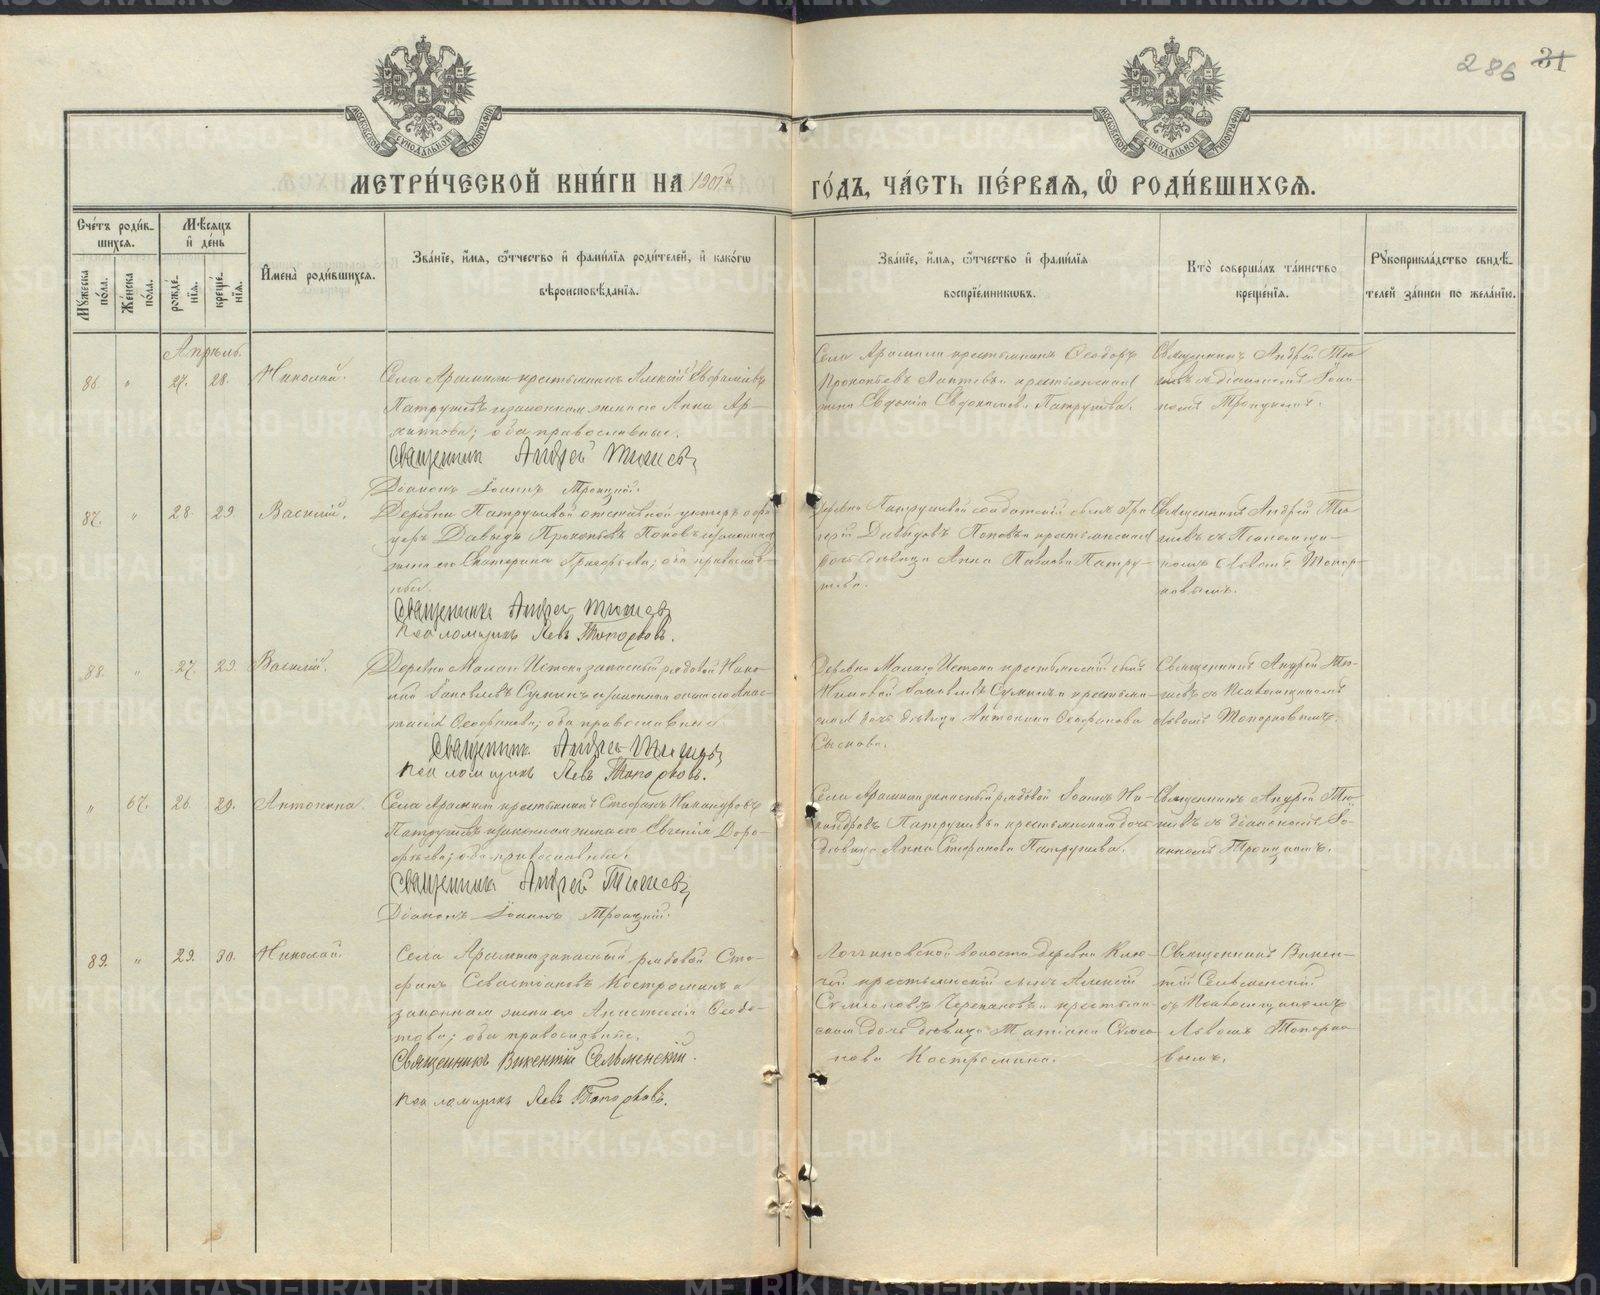 286 31
МОСКОВСКОЙ СѴНОДАЛЬНОЙ ТИПОГРАФІИ
МОСКОВСКОЙ СѴНОДАЛЬНОЙ ТИПОГРАФІИ
МЕТРИ́ЧЕСКОЙ КНИ́ГИ НА 1901й ГО́ДЪ, ЧА́СТЬ ПЕ́РВАЯ, Ѡ҆ РОДИ́ВШИХСЯ.
Сче́тъ роди́в-
шихся.
Мѣ́сяцъ
и҆ де́нь
Мꙋ́жеска по́ла.
Же́нска по́ла.
рожде́-
нїѧ.
креще́-
нїѧ.
И҆мена̀ роди́вшихся.
Зва́нїе, и҆́мя, ѻ҆́тчество и҆ фами́лїя роди́телей, и҆ како́гѡ
вѣроисповѣ́данїя.
Зва́нїе, и҆́мя, ѻ҆́тчество и҆ фами́лїя
воспрїе́мникѡвъ.
Кто̀ соверша́лъ та́инство
креще́нїя.
Рꙋкоприкла́дство свидѣ́-
телей за́писи по жела́нїю.
Апрѣль.
86. " 27. 28. Николай.
Села Арамили крестьянинъ Алексій Евфимiевъ
Патрушевъ и законная жена его Анна Ар-
хиппова; оба православные.
Священник Андрей Тюшев
Діаконъ Іоаннъ Троицкій.
Села Арамили крестьянинъ Ѳеодоръ
Прокопьевъ Лаптевъ и крестьянская
жена Евдокія Евдокимова Патрушева.
Священникъ Андрей Тю-
шевъ съ діакономъ Іоан-
номъ Троицкимъ.
87. " 28. 29. Василій.
Деревни Патрушевой отставной унтеръ офи-
церъ Давыдъ Прокопьевъ Поповъ и законная
жена его Екатерина Григорьева; оба православ-
ные.
Священник Андрей Тюшев
Псаломщикъ Левъ Топорковъ.
Деревни Патрушевой солдатскій сынъ Гри-
горій Давыдовъ Поповъ и крестьянская
дочь девица Анна Павлова Патру-
шева.
Священникъ Андрей Тю-
шевъ съ Псаломщи-
комъ Львомъ Топор-
ковымъ.
88. " 27. 29. Василій.
Деревни Малаго Истока запасный рядовой Нико-
лай Іаковлевъ Сурнинъ и законная жена его Анас-
тасія Ѳеофанова; оба православные.
Священник Андрей Тюшев
Псаломщикъ Левъ Топорковъ.
Деревни Малаго Истока крестьянскій сынъ
Іаковлевъ Сурнинъ и крестьян-
ская дочь девица Антонина Ѳеофанова
Сыскова.
Священникъ Андрей Тю-
шевъ съ Псаломщикомъ
Львомъ Топорковымъ.
" 67. 26. 29. Антонина.
Села Арамили крестьянинъ Стефанъ Никандровъ
Патрушевъ и законная жена его Евгенія Доро-
феева; оба православные.
Священник Андрей Тюшев
Діаконъ Іоаннъ Троицкій.
Села Арамили запасный рядовой Іоаннъ Ни-
кандровъ Патрушевъ и крестьянская дочь
девица Анна Стефанова Патрушева.
Священникъ Андрей Тю-
шевъ съ діакономъ Іо-
анномъ Троицкимъ.
89. " 29. 30. Николай.
Села Арамили запасный рядовой Сте-
фанъ Севастіановъ Костроминъ и
законная жена его Анастасія Ѳедо-
това; оба православные.
Священникъ Викентій Сельменскій.
Псаломщикъ Левъ Топорковъ.
Логиновской волости деревни Клю-
чей крестьянскій сынъ Алексій
Симеоновъ Черепановъ и крестьян-
ская дочь девица Татіана Симео-
нова Костромина.
Священникъ Викен-
тій Сельменскій
съ Псаломщикомъ
Львомъ Топорко-
вымъ.
METRIKI.GASO-URAL.RU